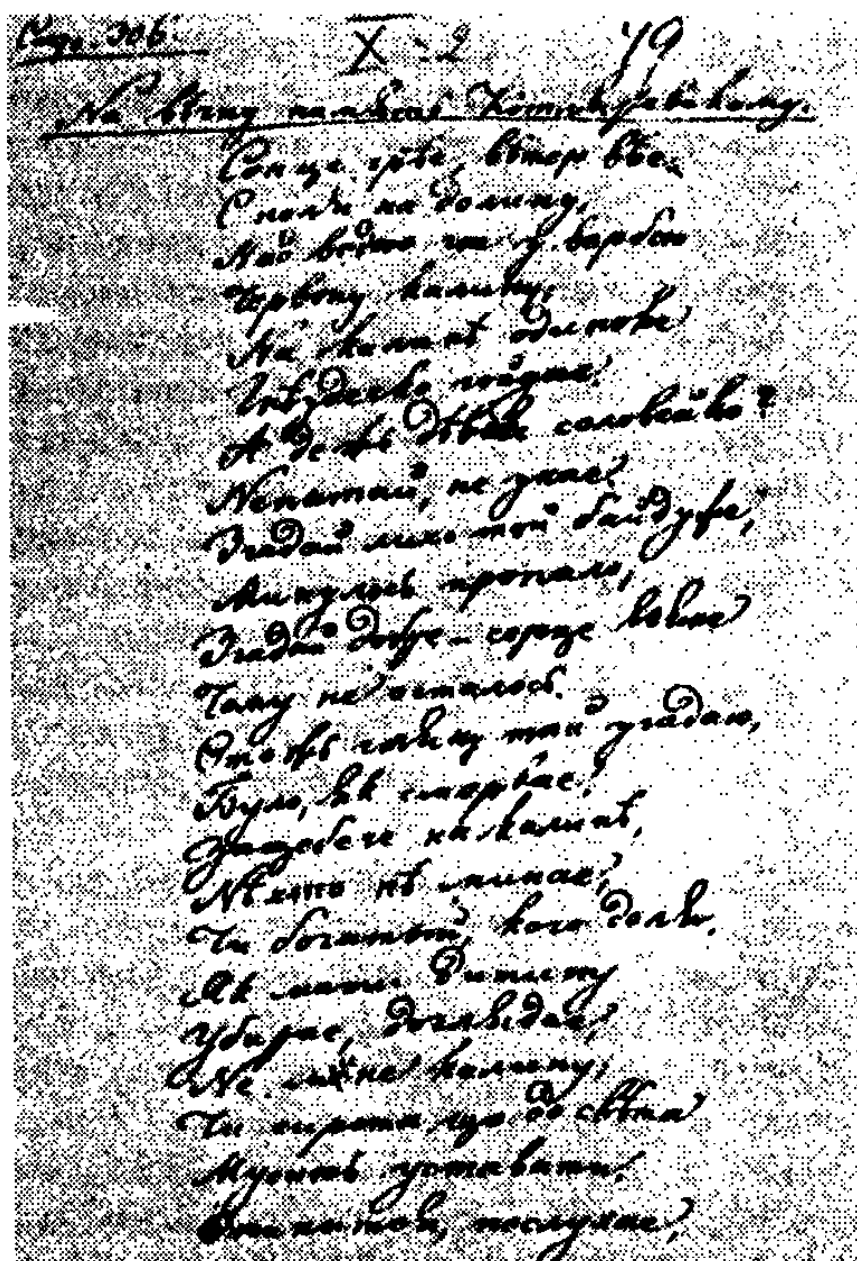 Стр. 306.
X - 2 79
На вѣчну памѣть Котляревському.
Сонце грѣе, вѣтер вѣе
С поля на долину,
Над водою гне з вербою
Червону калину;
На калинѣ одиноке
Гнѣздечко гойдае.
А дежъ дѣвсь соловейко?
Не питай, не знае.
Згадай лихо той байдуже,
Минулось пропало,
Згадай добре – серце вѣяне
Чому не осталось.
Отожъ гляну той згадаю,
Було, як смеркае,
Защебече на калинѣ,
Нѣхто нѣ минае;
Чи богатый, кого доля,
Як мати дитину
Убирае, доглядае,
Не мине калину;
Чи сирота що до свѣта
Мусить уставати.
Опинитця, послухае,